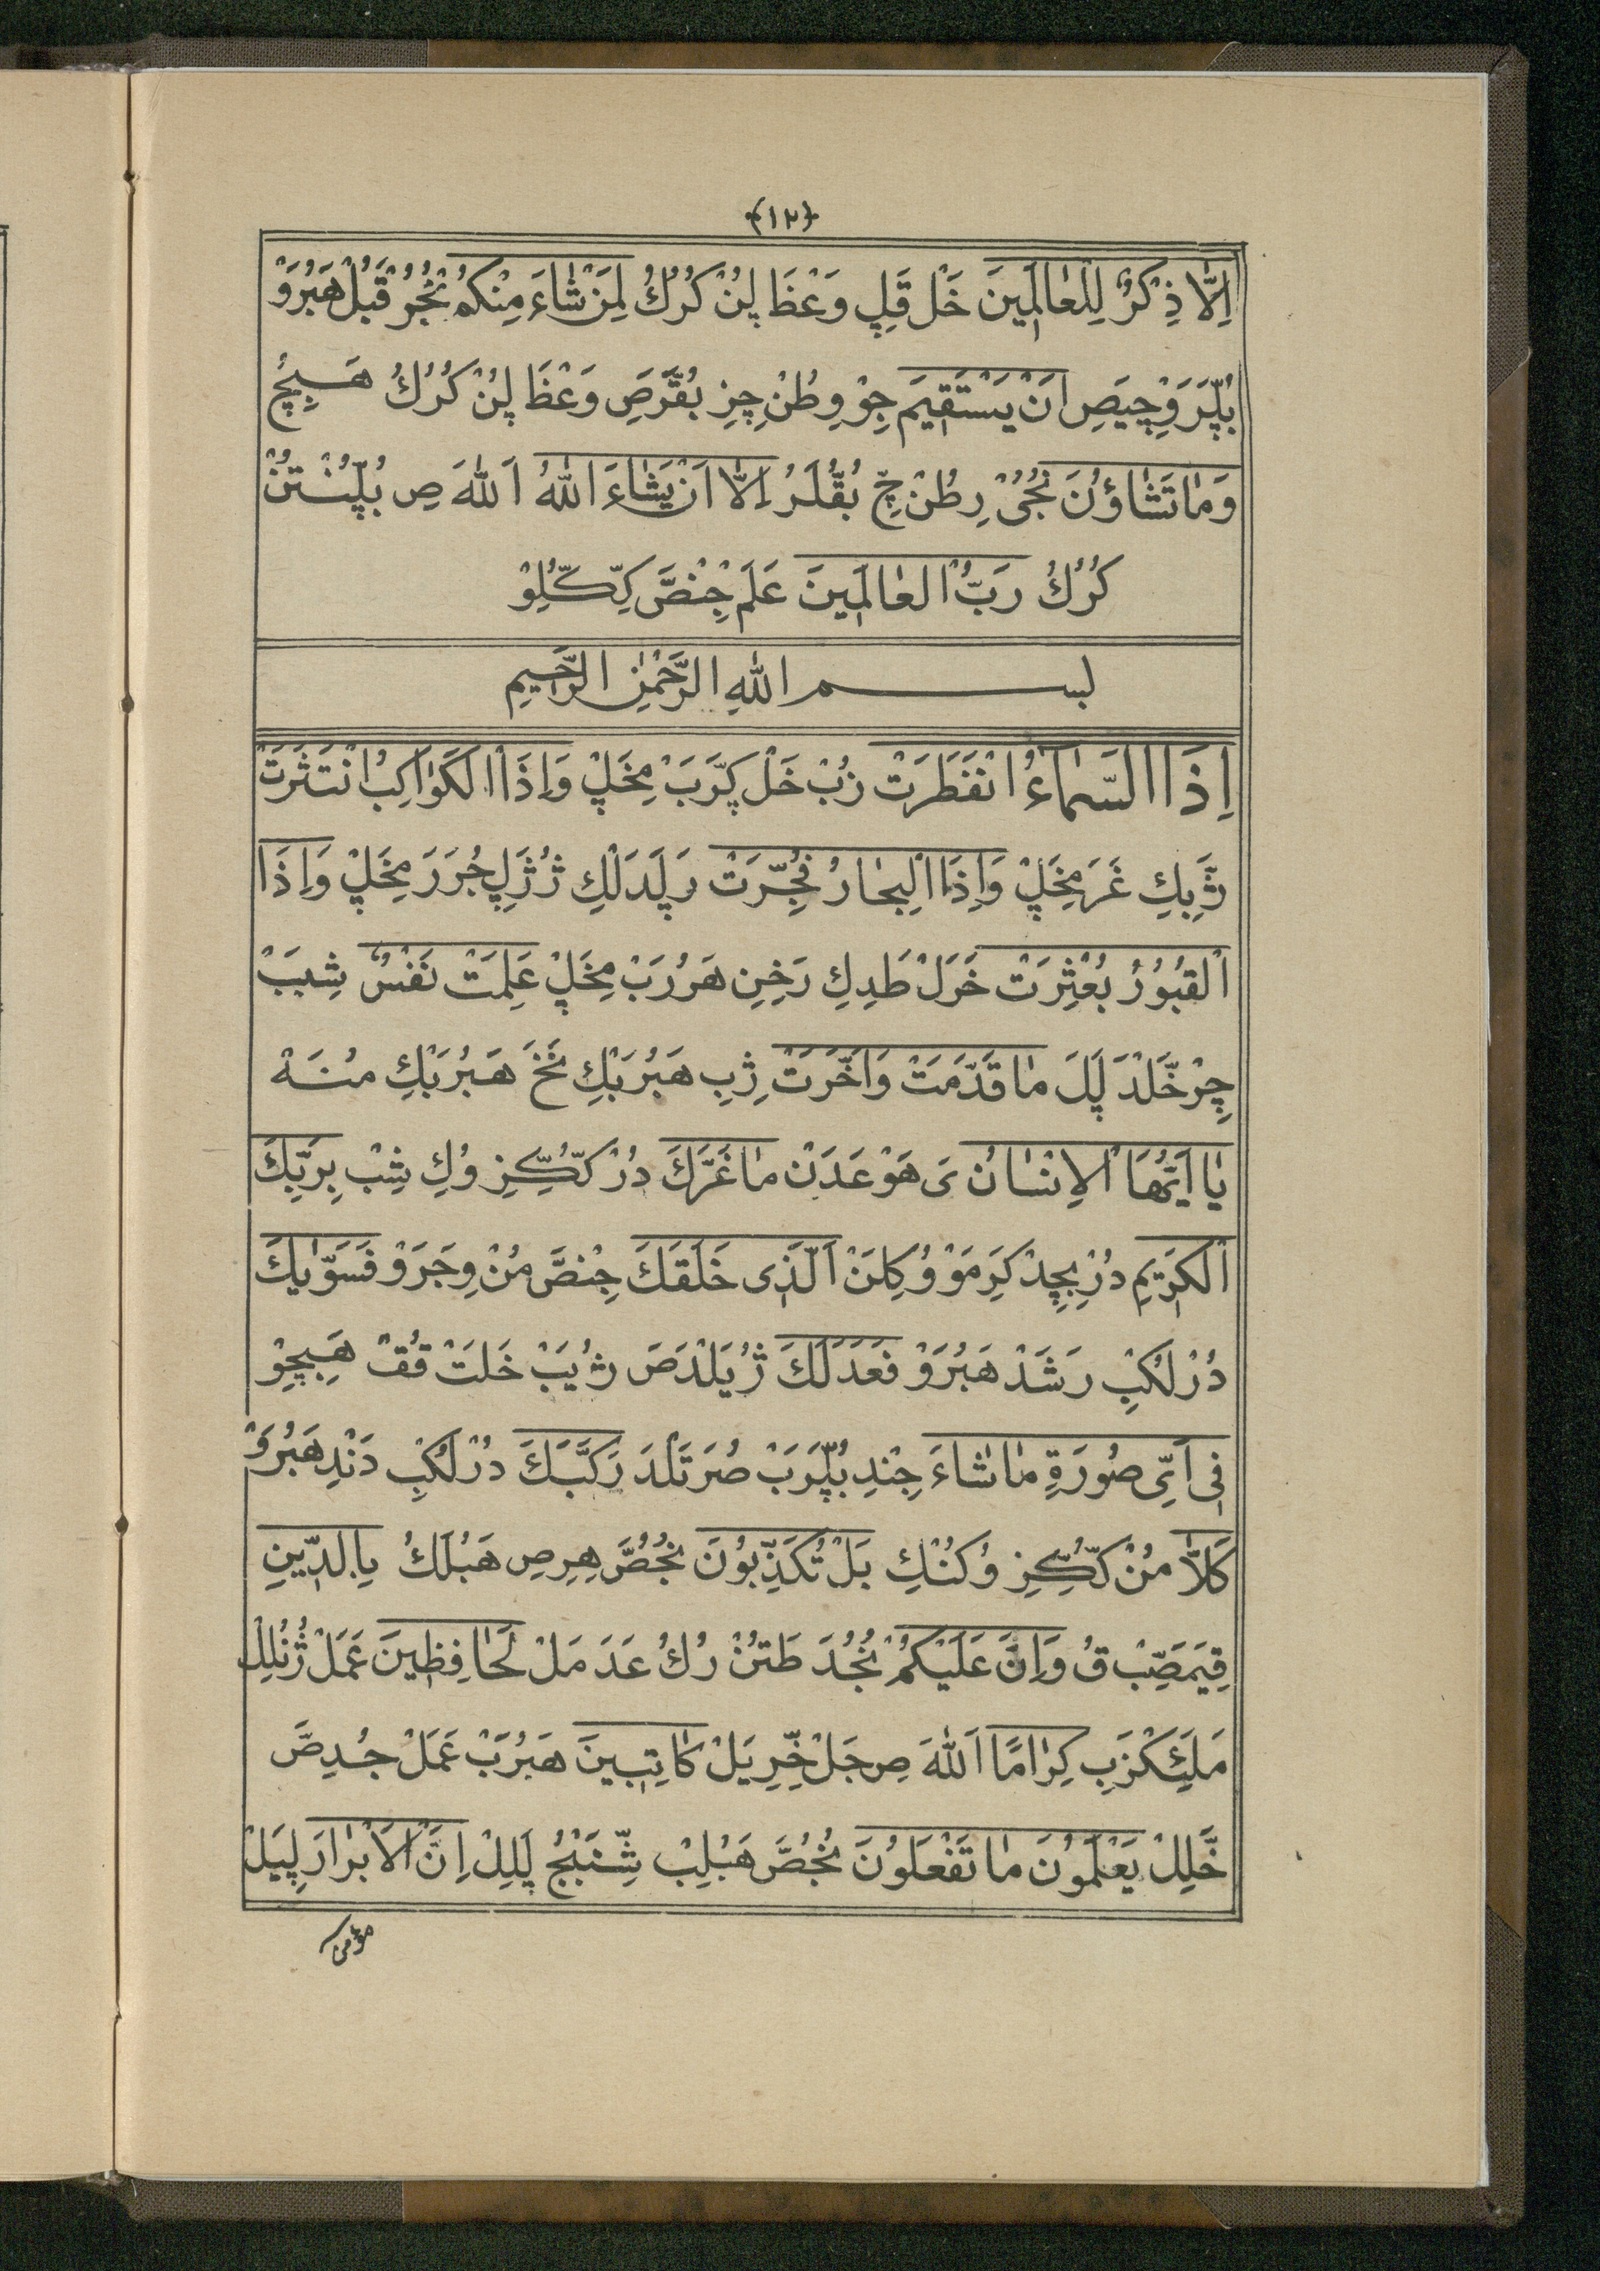 ﴿١٢﴾
اِلَّا ذِكْرٌ لِلْعَالَمِينَ خَلْ قَلِ وَعْظَا لِنُنْ كُرُكُ لِمَنْ شَاءَ مِنْكُمْ نُجُرْ قَبُلْ هَبُرَوْ
بُلَّرَوِ جِيَصِ اَنْ يَسْتَقِيمَ جِوْ وِطُنْ چِزِ بُقَّرَصِ وَعْظَا لِنُنْ كُرُكُ هَبِچُ
وَمَا تَشَاؤُنَ نُجُيْ رِطُنْ چِّ بُقُّلَرُ اِلَّا اَنْ يَشَاءَ اللهُ اَللهَ صِ بُلِّنْتُنْ
كُرُكُ رَبُّ الْعَالَمِينَ عَلَمْ جِنْصَّ كِكُّلِوْ
بِسْمِ اللهِ الرَّحْمٰنِ الرَّحِيمِ
اِذَا السَّمَاءُ انْفَطَرَتْ زُبْ خَلْ كِرَّبَ مِخَلْ وَاِذَا الْكَوَاكِبُ انْتَثَرَتْ
ژَّبِكِ غَرَ مِخَلْ وَاِذَا الْبِحَارُ فُجِّرَتْ رَلَدَلْكِ ژُژَلِ جُرَرَ مِخَلْ وَاِذَا
الْقُبُوُرُ بُعْثِرَتْ خَرَلْ طَدِكِ رَخِنِ هَرُرَبْ مِخَلْ عَلِمَتْ نَفْسٌ شِبَبْ
چِرْخَّلْدَ لَلَ مَا قَدَّمَتْ وَاَخَّرَتْ ژِبِ هَبُرَبْكِ نَخَ هَبُرَبْكِ مُنَهْ
يَا اَيُّهَا الْاِنْسَانُ ىَ هَوْعَدَنْ مَا غَرَّكَ دُرْ كُّكِّزِ وُكِ شِبْ بِرَبِّكَ
الْكَرِيمِ دُرْ بِچِدْ كَرِمَوْ وُكِلَنْ اَلَّذِى خَلَقَكَ جِنْصَّ مُنْ وِجَرَوْ فَسَوّٰيكَ
دُرْ لَكُبِ رَشَدْ هَبُرَوْ فَعَدَلَكَ ژُيَلْدَصَ ژُيَبْ خَلَتْ قُقْ هَبِچِوْ
فِى اَىِّ صُورَةٍ مَا شَاءَ جِنْدِ بُلَّرَبْ صُرَتَلْدَ رَكَّبَكَ دُرْ لَكُبِ دَنْدِ هَبُرَوْ
كَلَّا مُنْ كُّكِّزِ وُكُنْكِ بَلْ تُكَذِّبُونَ نُجُصَّ هِرِصِ هَبُلَكُ بِالدِّينِ
قِيَمَصِّبْ قُ وَاِنَّ عَلَيْكُمْ نُجُدَ طَتَنْ رُكُ عَدَمَلْ لَحَافِظِينَ عَمَلْ ژُنُلِلْ
مَلَئِكْزَبِ كِرَامًا اَللهَ صِ جَلْ خِّرِيَلْ كَاتِبِينَ هَبُرَبْ عَمَلْ جُدِصَّ
خَّلِلْ يَعْلَمُونَ مَا تَفْعَلُونَ نُجُصَّ هَبْلِبْ شِّنَبْجُ لَلِلْ اِنَّ الْاَبْرَارَ لِيَلْ
مؤمن